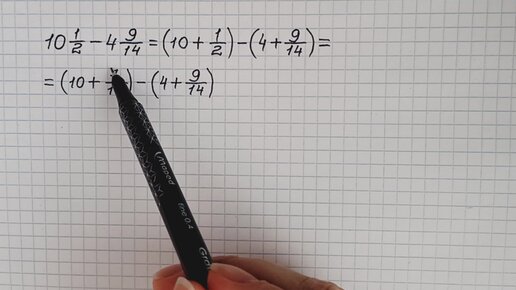 10 1/2 - 4 9/14 = (10 + 1/2) - (4 + 9/14) =
= (10 + ) - (4 + 9/14)
Maped